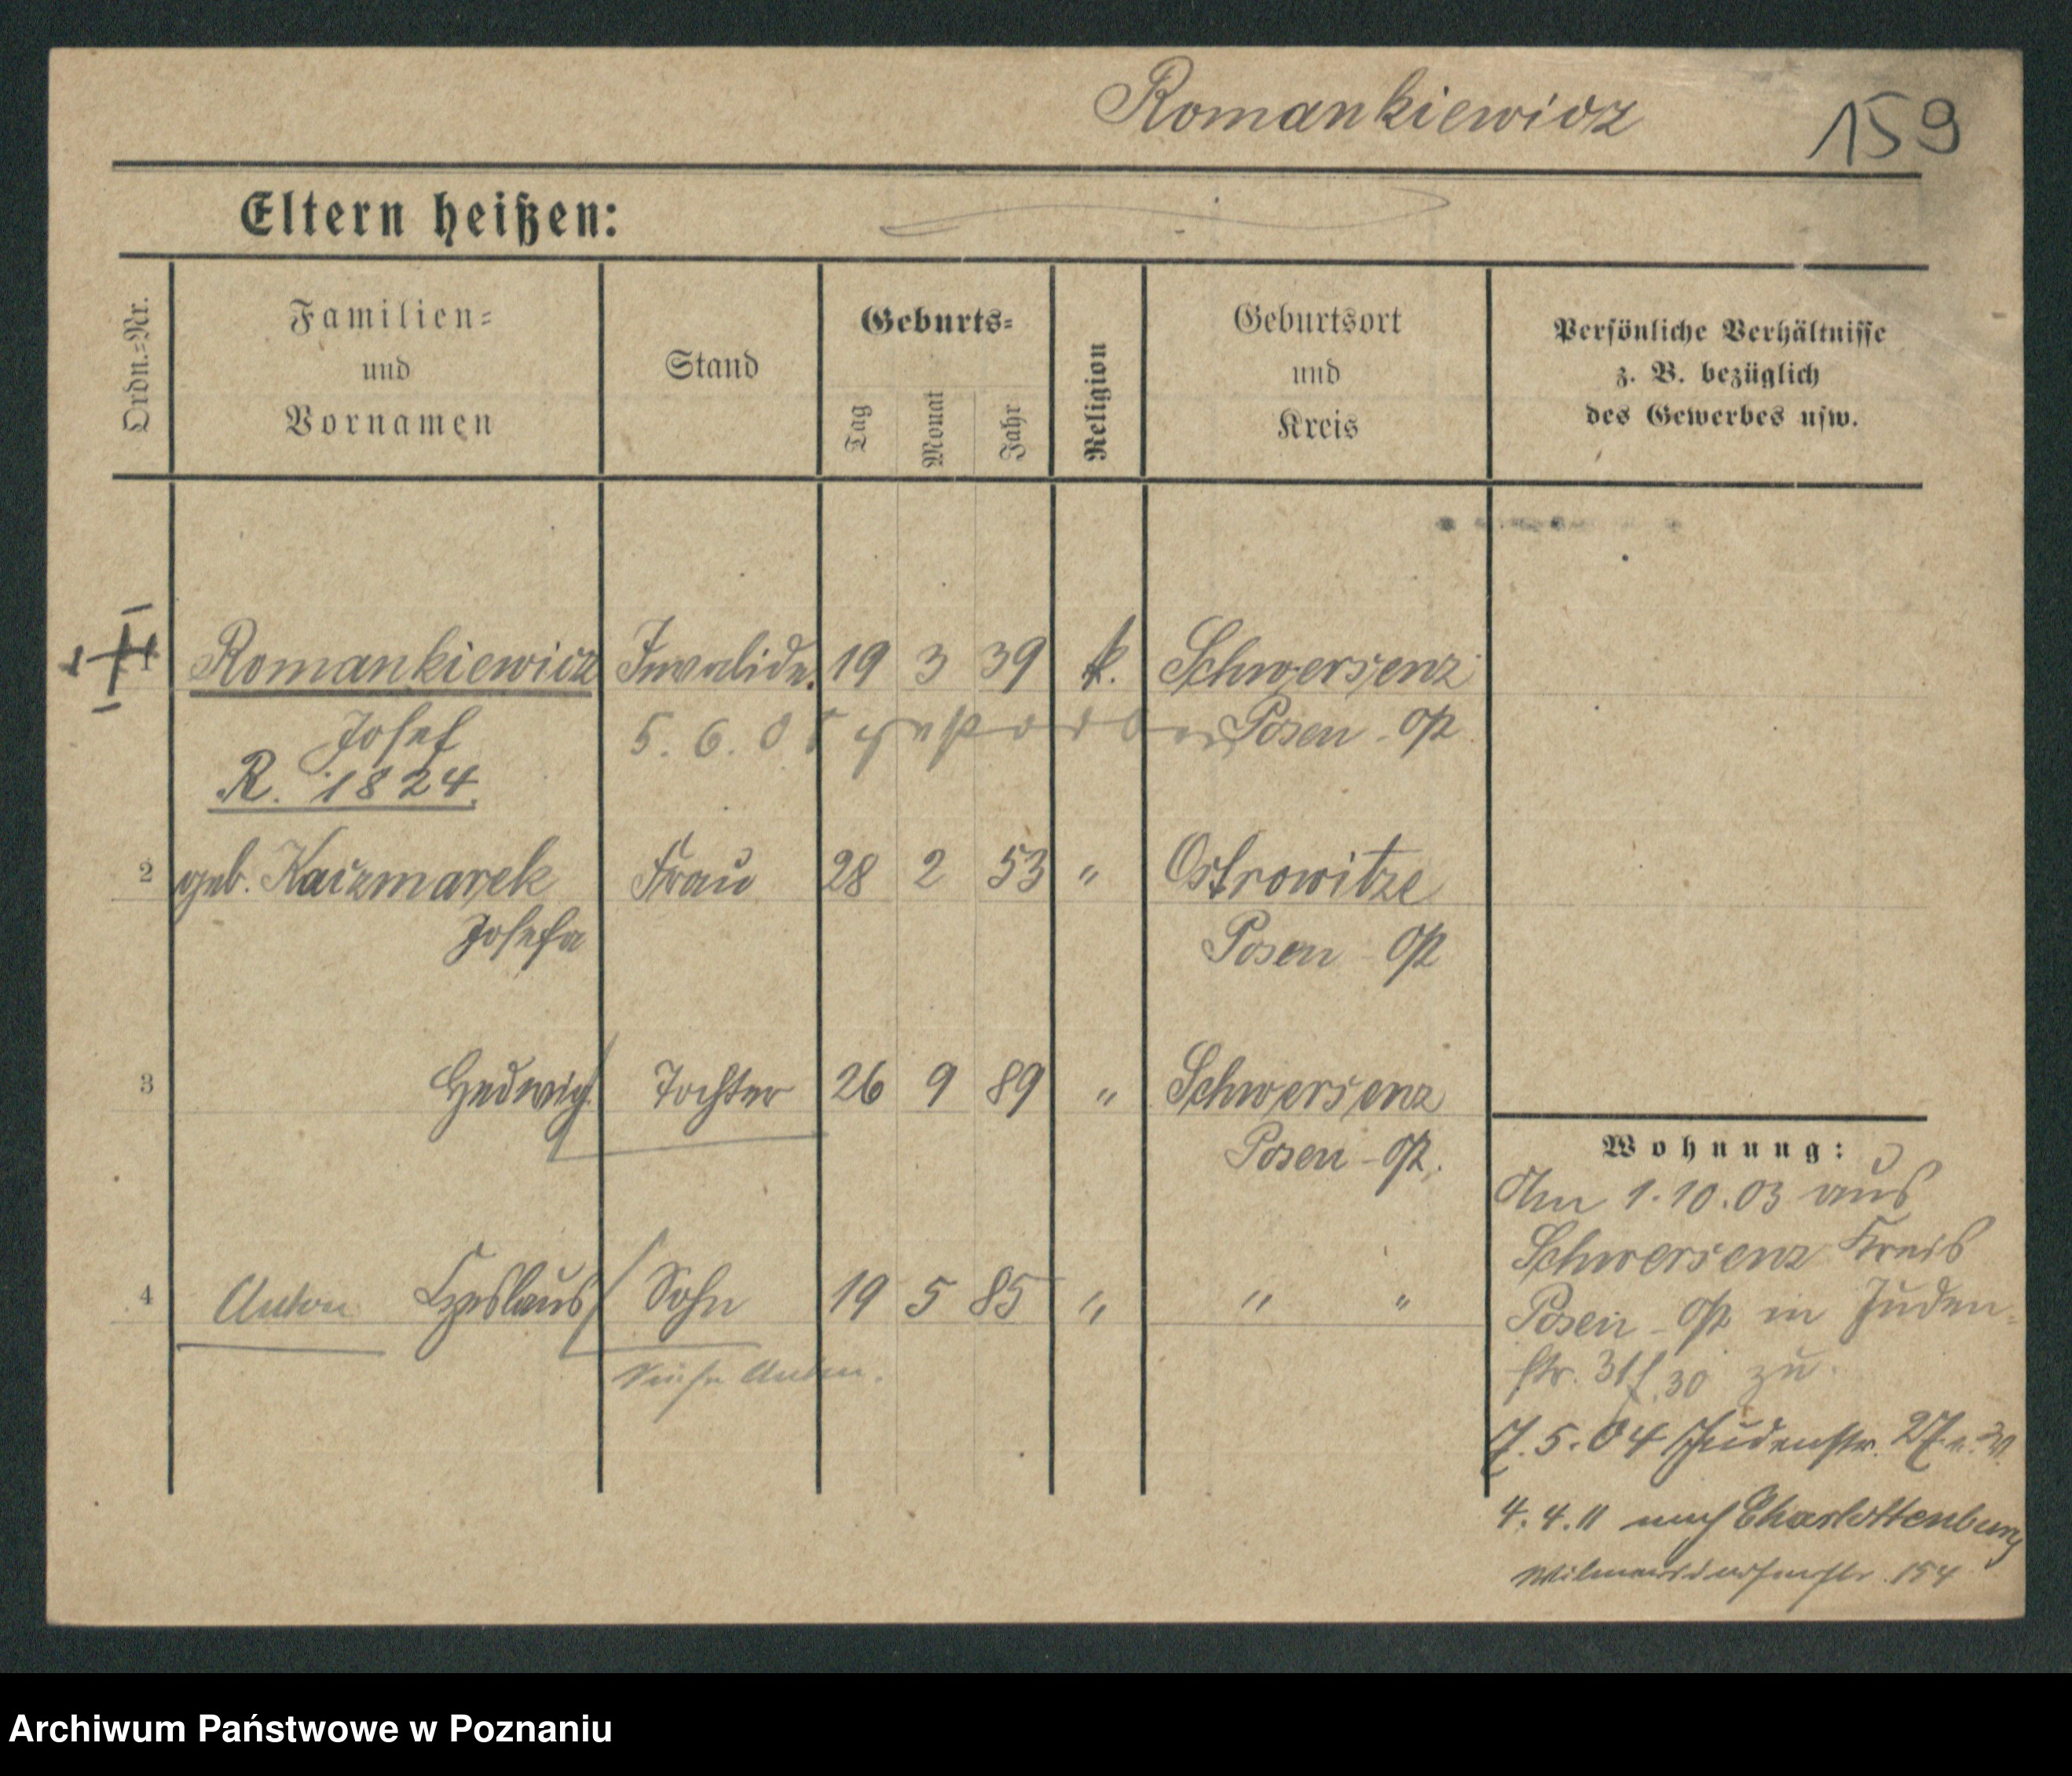 Romankiewicz 159
Eltern heißen:
Ordn.=Nr.
Familien=
und
Vornamen
Stand
Geburts=
Tag
Monat
Jahr
Religion
Geburtsort
und
Kreis
Persönliche Verhältnisse
z. B. bezüglich
des Gewerbes usw.
1 Romankiewicz Invalide. 19 3 39 k. Schwersenz
Josef 5. 6. 05 gestorben Posen-Op.
R. 1824.
2 geb. Kaczmarek Frau 28 2 53 " Ostrowitze
Josefa Posen-Op
3 Hedwig Tochter 26 9 89 " Schwersenz
Posen-Op.
4 Anton Czeslaus Sohn 19 5 85 " " "
Siehe Anton.
Wohnung:
Am 1.10.03 aus
Schwersenz Kreis
Posen-Op in Juden-
str. 31 30 zu.
7.5.04 Judenstr. 27
4.4.11 nach Charlottenburg
Wilmersdorferstr. 154
Archiwum Państwowe w Poznaniu